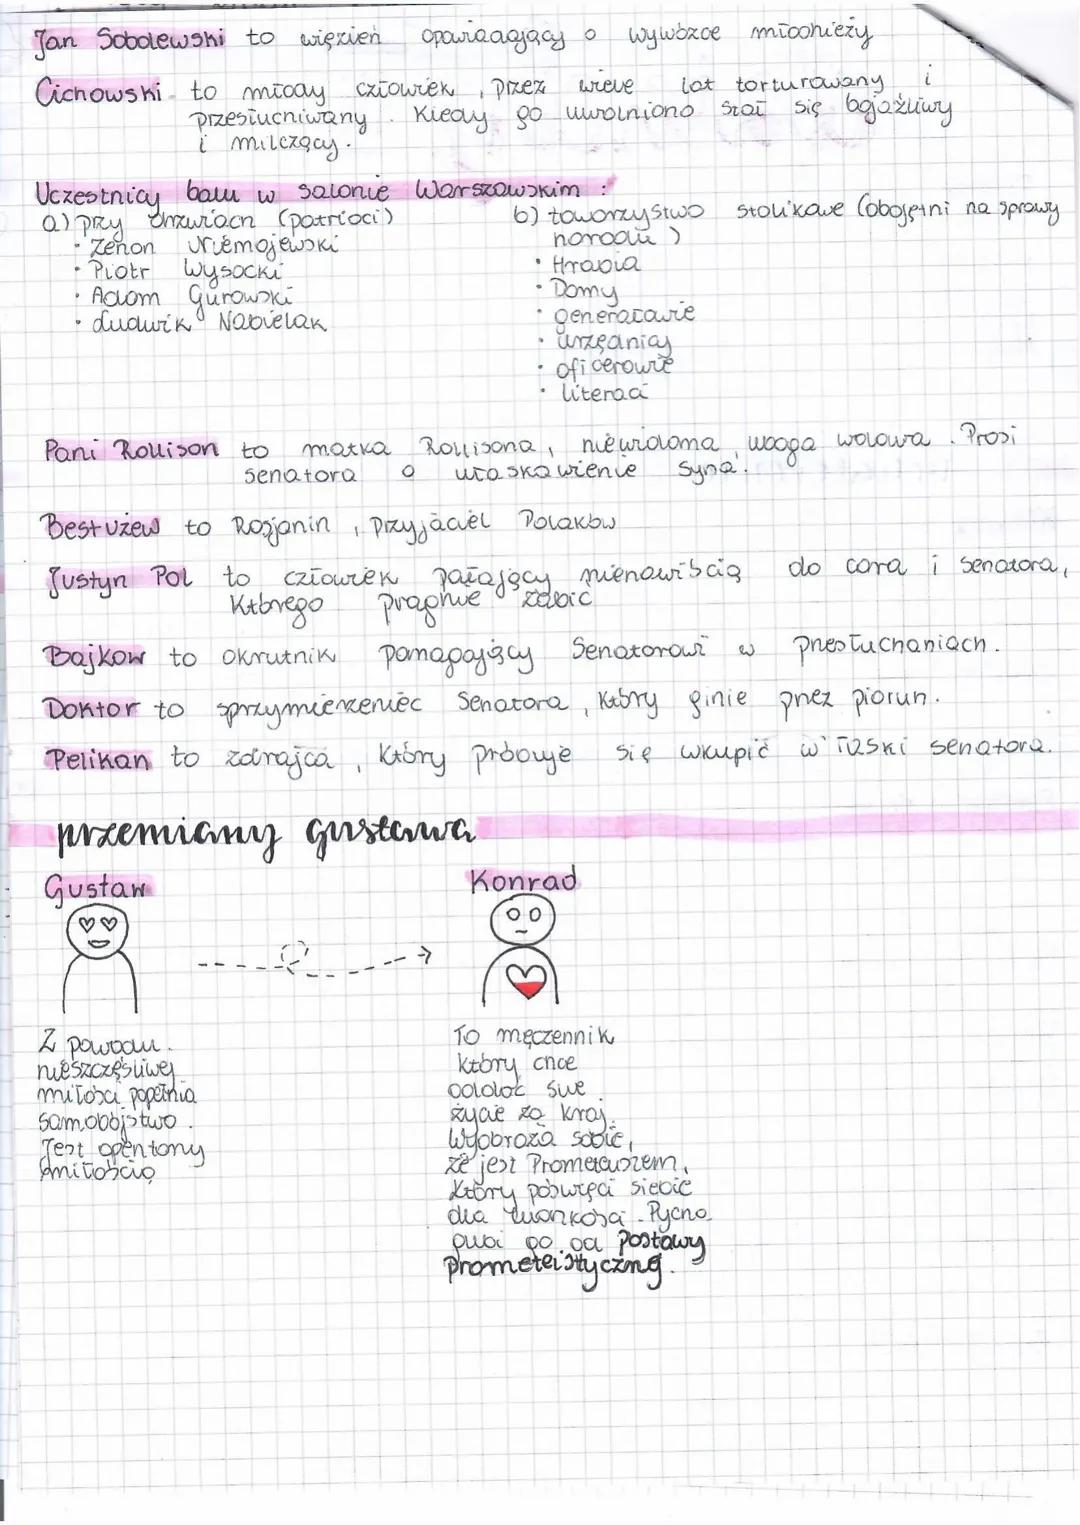 Jan Sobolewski to więzień opowiadający o wywózce młodnieży
Cichowski to młody człowiek, przez wiele lat torturowany i
przesłuchiwany. Kiedy go uwolniono stał się bojaźliwy
i milczący.
Uczestnicy balu w salonie Warszawskim:
a) przy drzwiach (patrioci)
· Zenon Niemojewski
· Piotr Wysocki
· Adam Gurowski
· Ludwik Nabielak
b) towarzystwo stolikowe (obojętni na sprawy
narodu)
· Hrabia
· Damy
· generałowie
· urzędnicy
· oficerowie
· literaci
Pani Rollison to matka Rollisona, niewidoma, uboga wdowa. Prosi
senatora o ułaskawienie syna.
Bestużew to Rosjanin, przyjaciel Polaków
Justyn Pol to człowiek pałający nienawiścią do cara i Senatora,
którego pragnie zabić
Bajkow to okrutnik pomagający Senatorowi w przesłuchaniach.
Doktor to sprzymierzeniec Senatora, który ginie przez piorun.
Pelikan to zdrajca, który próbuje się wkupić w łaski senatora.
przemiany gustawa
Gustaw
Z powodu
nieszczęśliwej
miłości popełnia
samobójstwo.
Jest opentany
miłością
Konrad
To męczennik
który chce
oddać swe
życie za kraj.
Wyobraża sobie,
że jest Prometeuszem,
który poświęci siebie
dla ludzkości. Pycha
gubi go od postawy
prometeistyczną.